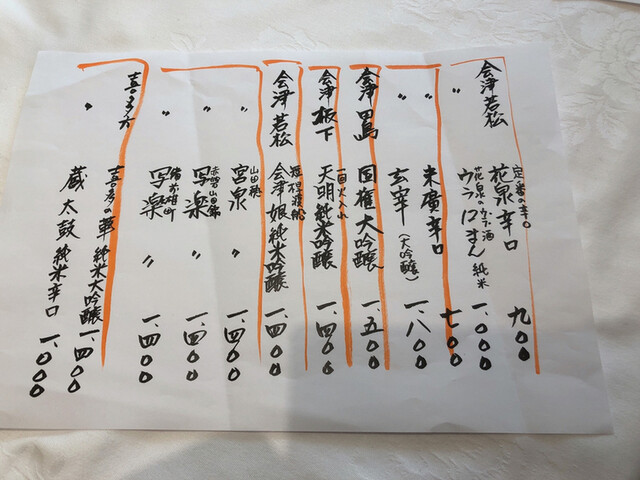 会津若松
定番の辛口
花泉辛口 九〇〇
〃
花泉のウラ酒
ウラロまん 純米 一、〇〇〇
末廣辛口 七〇〇
〃
玄宰(大吟醸) 一、八〇〇
会津田島
国権大吟醸 一、五〇〇
会津坂下
一回火入れ
天明純米吟醸 一、四〇〇
会津若松
会津娘純米吟醸 一、四〇〇
〃
山田穂
宮泉 〃 一、四〇〇
〃
赤磐山田錦
写楽 〃 一、四〇〇
備前雄町
写楽 〃 一、四〇〇
喜多方
喜多の華純米大吟醸 一、四〇〇
〃
蔵太鼓純米辛口 一、〇〇〇